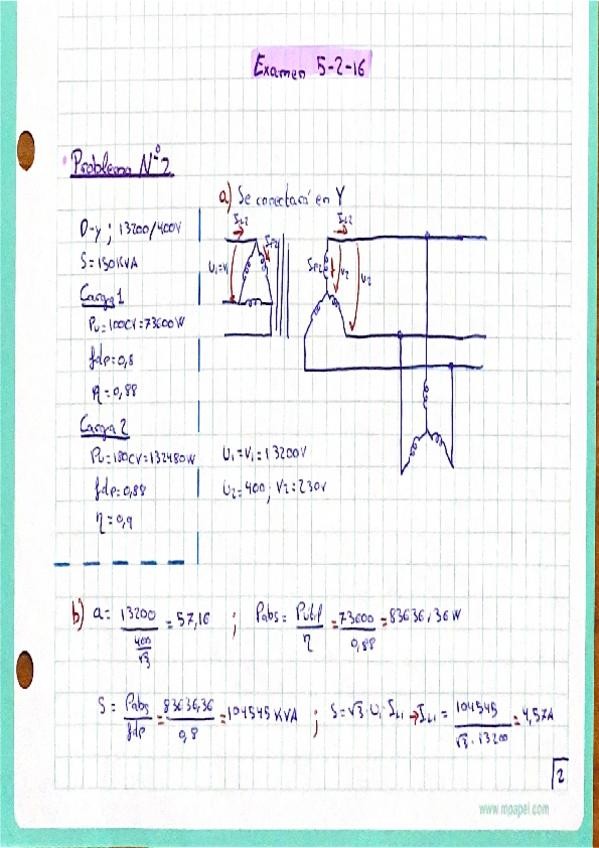 Examen 5-2-16
Problema Nº2
a) Se conectará en Y
D-y ; 13200/400V
S=150KVA
Carga 1
Pu=100CV=73600W
fdp=0,8
η=0,88
Carga 2
Pu=180CV=132480W
fdp=0,88
η=0,9
IL2
IL2
U1=V1
V2
U2
U1=V1=13200V
U2=400; V2=230V
b) a= 13200 / (400/√3) =57,16 ; Pabs= Pútil/η = 73600/0,88 =83636,36W
S= Pabs/fdp = 83636,36/0,8 =104545KVA ; S=√3·U1·IL1 → IL1= 104545/(√3·13200) =4,57A
2
www.mpapel.com